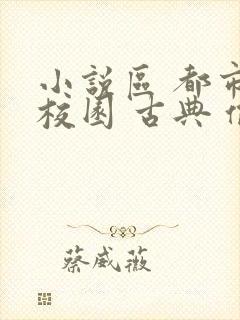 小說區 都市
校園 古典
蔡威薇